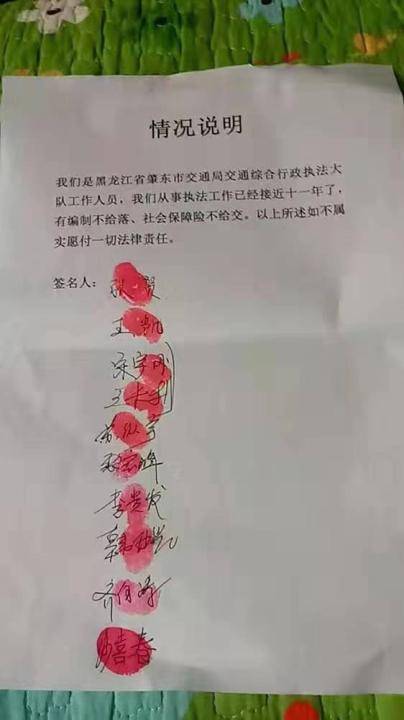 情况说明
我们是黑龙江省肇东市交通局交通综合行政执法大
队工作人员，我们从事执法工作已经接近十一年了，
有编制不给落、社会保障险不给交。以上所述如不属
实愿付一切法律责任。
签名人：
王凯
宋宇刚
李贵发
春